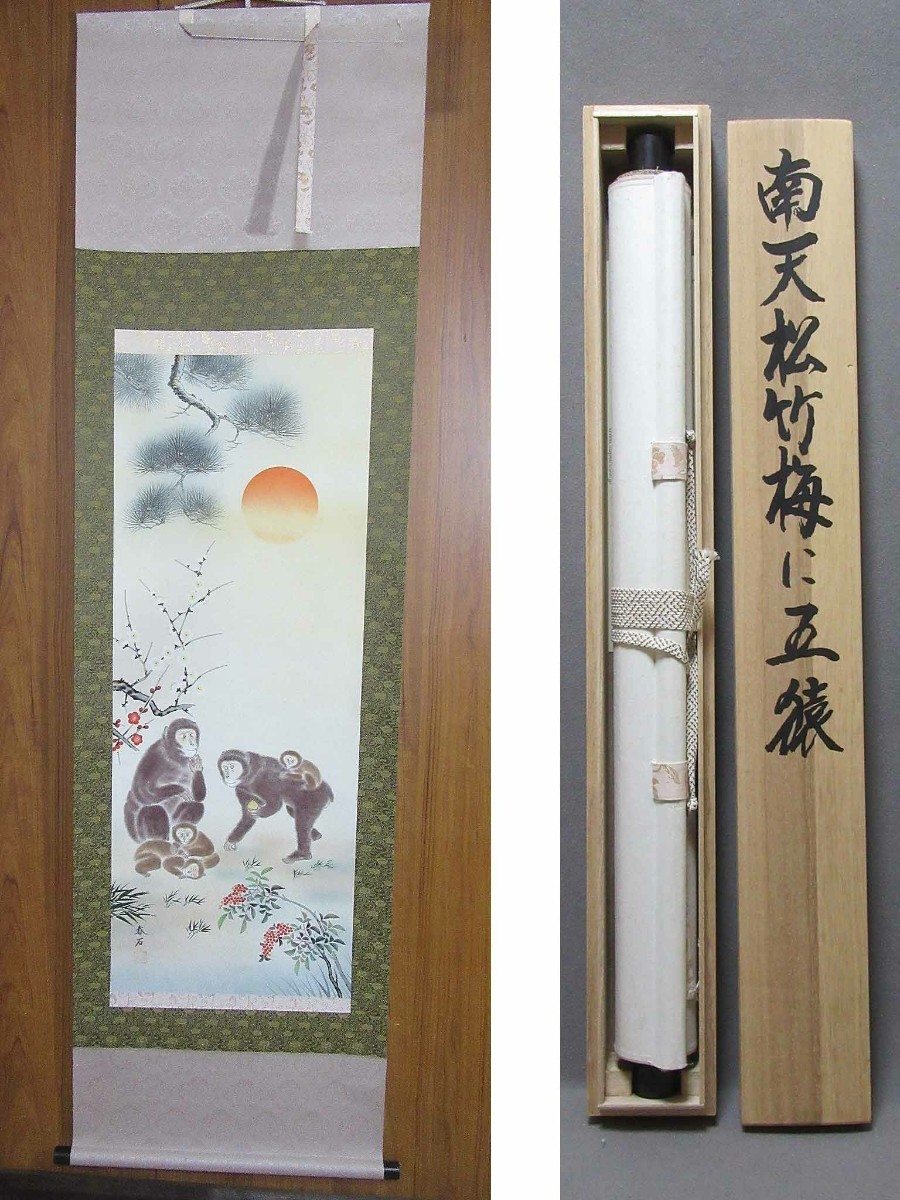 春石
南天松竹梅に五猿